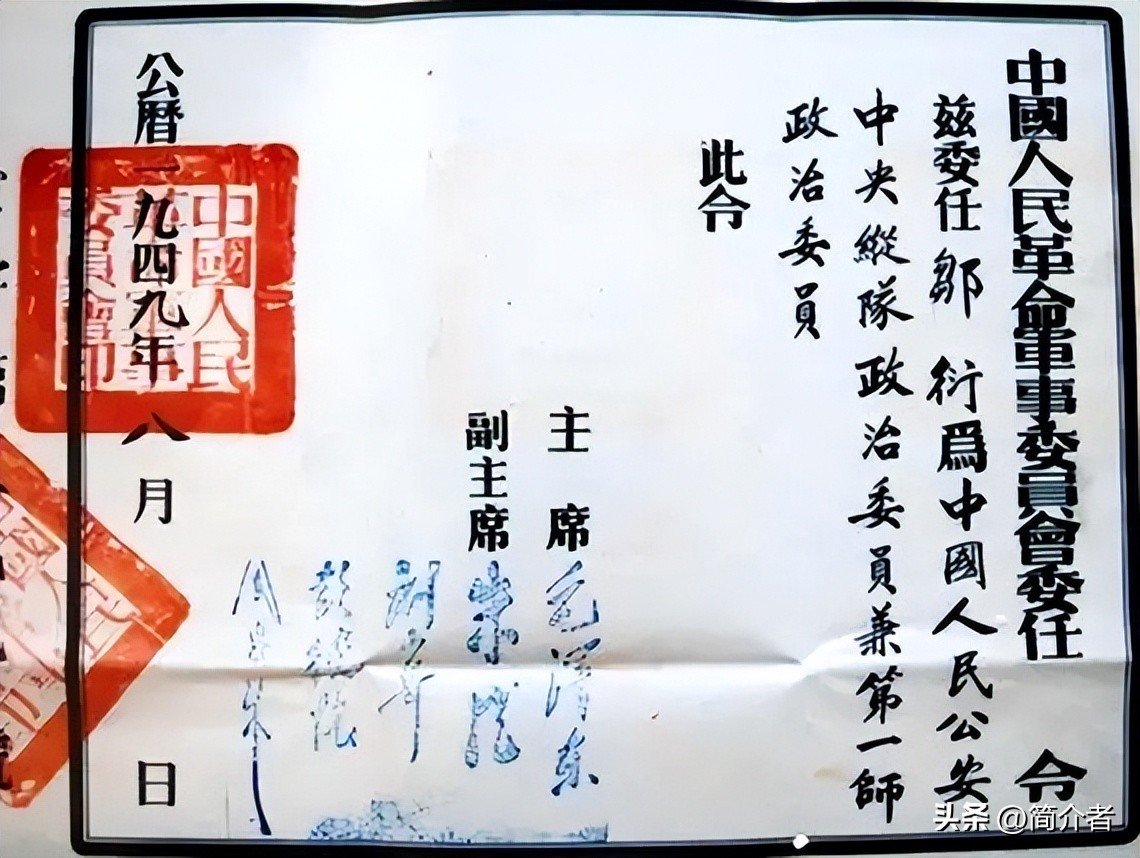 中國人民革命軍事委員會委任令
茲委任鄒衍爲中國人民公安
中央縱隊政治委員兼第一師
政治委員
此令
主席 毛澤東
副主席 朱德
劉少奇
彭德懷
周恩來
公曆一九四九年八月 日
中國人民
革命軍事
委員會印
头条 @简介者